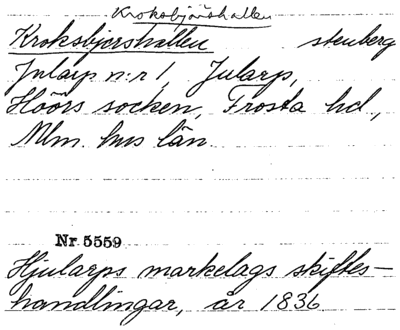 Kroksbjärshallen
Kroksbjershallen stenberg
Jularp n:r 1, Jularp,
Höörs socken, Frosta hd.,
Mlm. hus län.
Nr 5559
Hjularps markelags skiftes-
handlingar, år 1836.